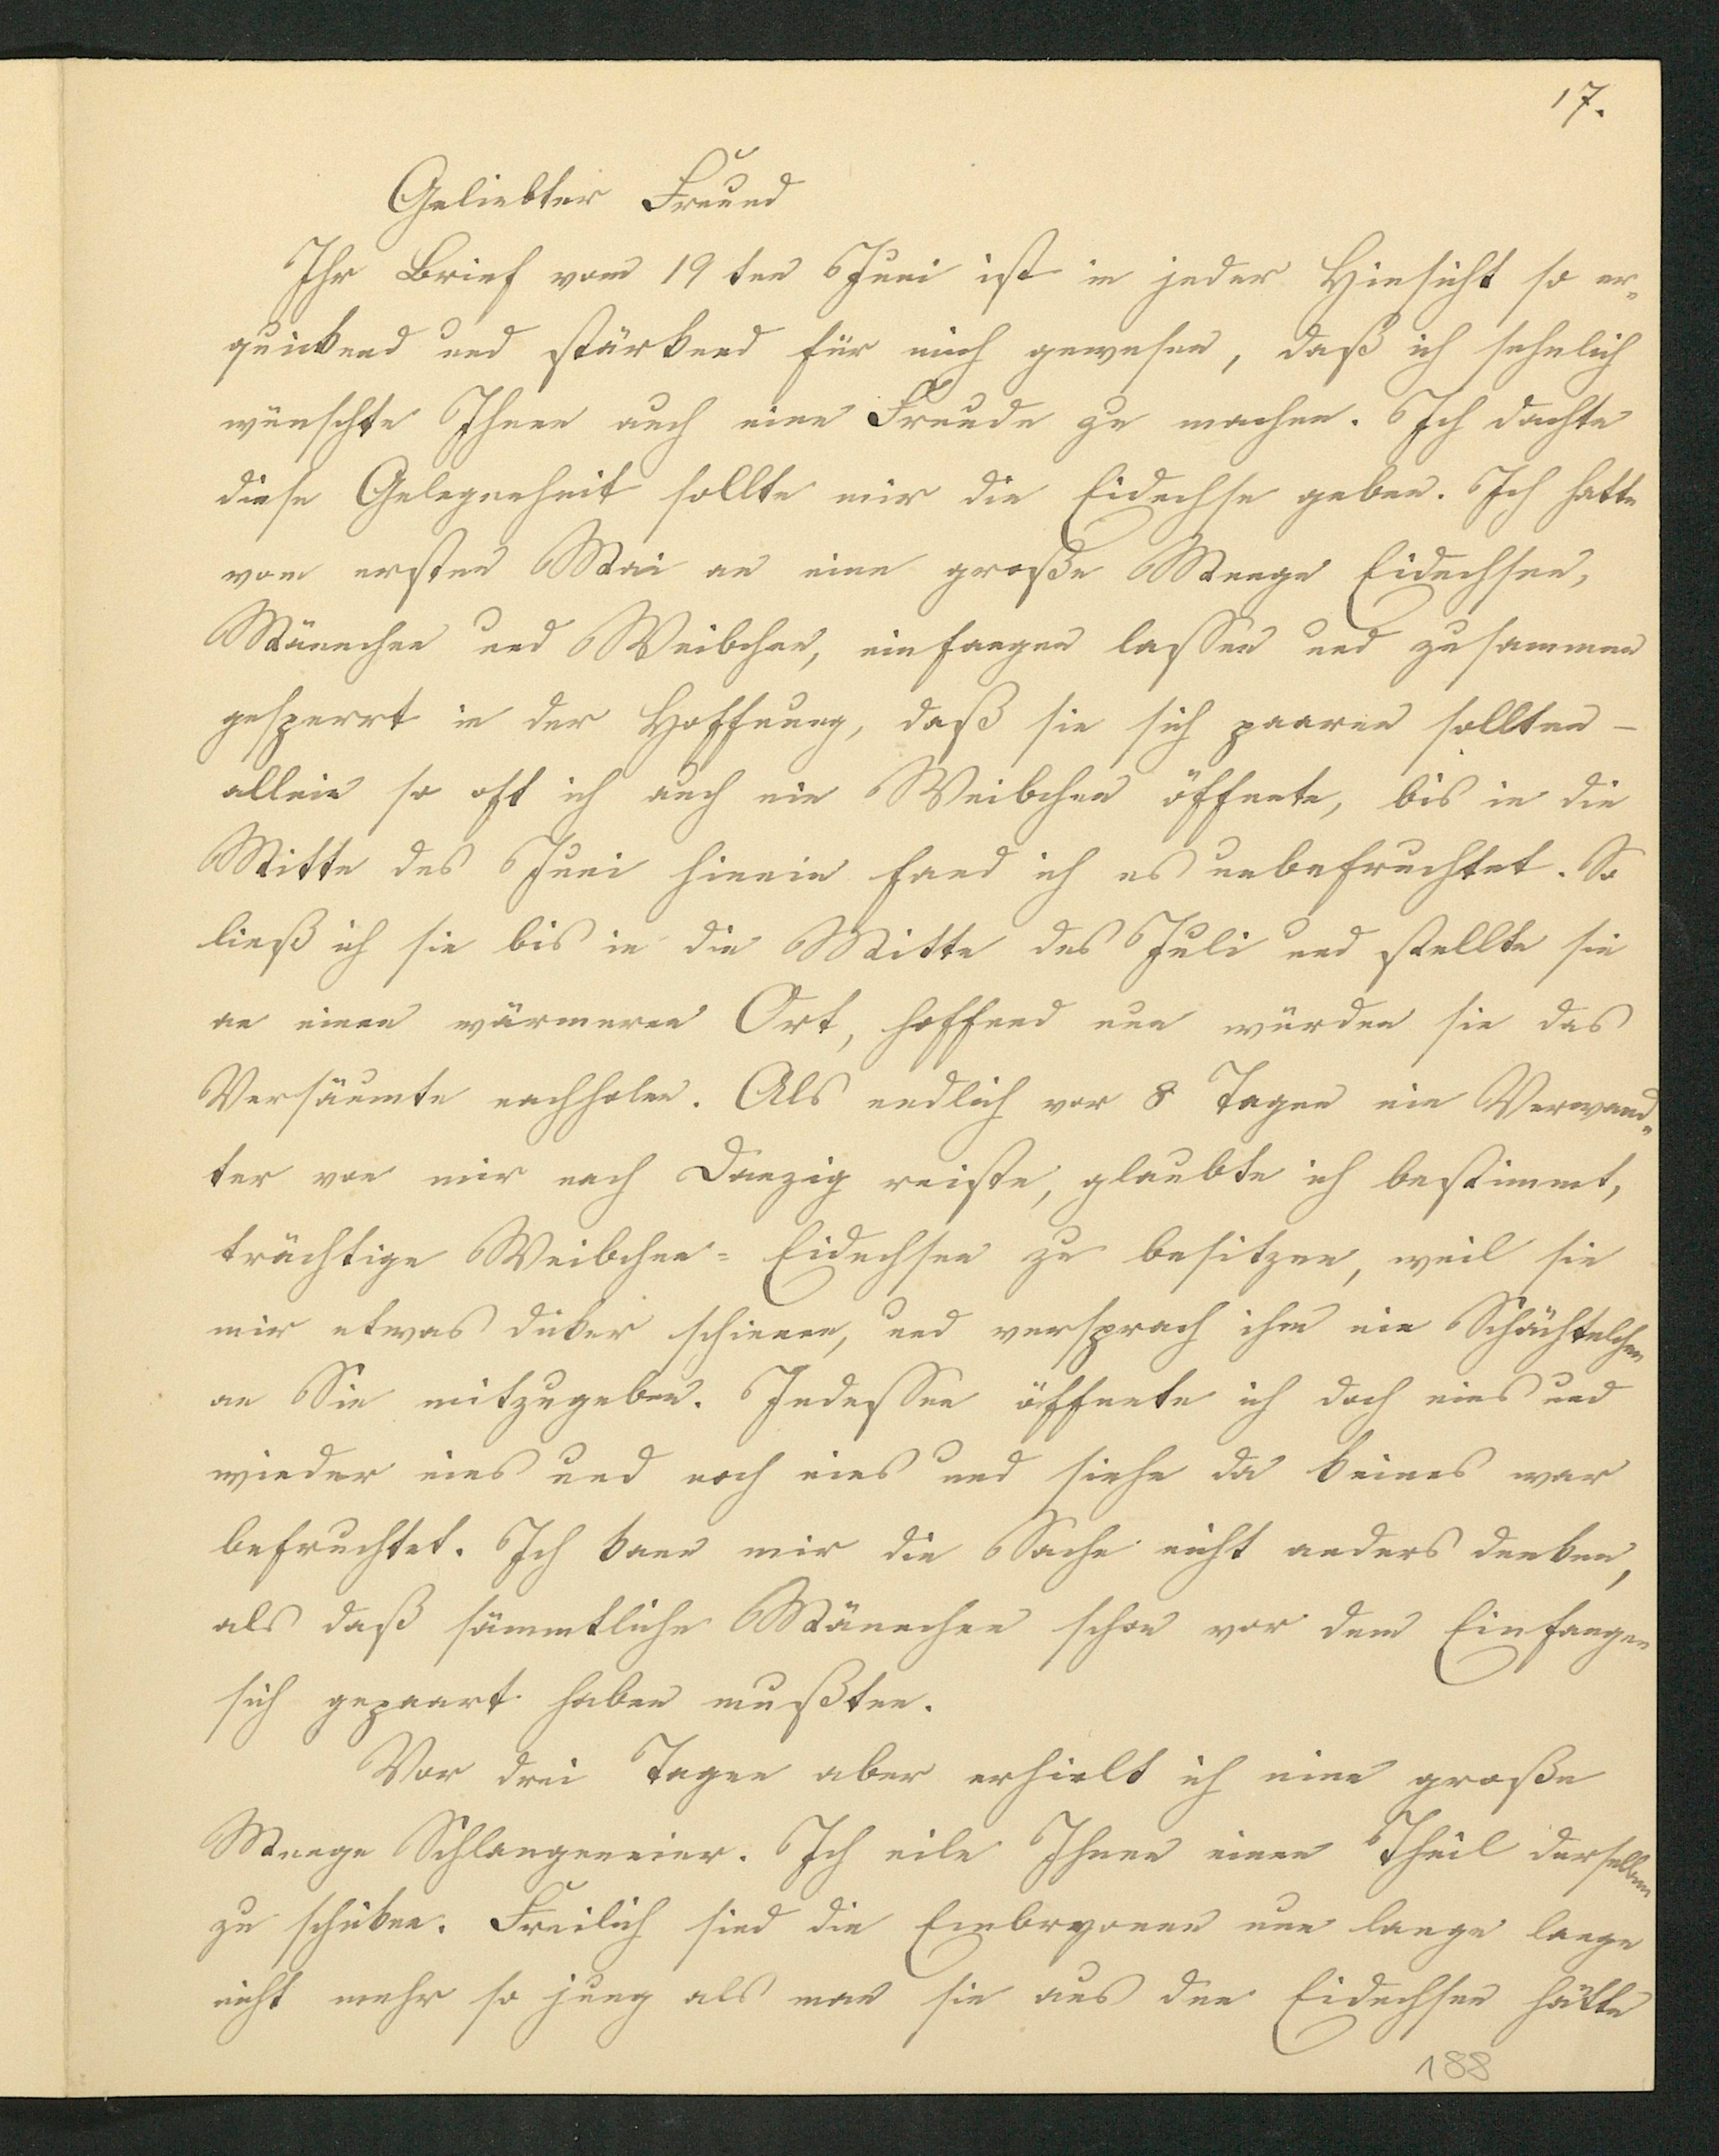 17.
Geliebter Freund
Ihr Brief vom 19ten Juni ist in jeder Hinsicht so er-
quickend und stärkend für mich gewesen, daß ich sehnlich
wünschte Ihnen auch eine Freude zu machen. Ich dachte
diese Gelegenheit sollte mir die Eidechse geben. Ich hatte
vom ersten Mai an eine große Menge Eidechsen,
Männchen und Weibchen, einfangen lassen und zusammen
gesperrt in der Hoffnung, daß sie sich paaren sollten –
allein so oft ich auch ein Weibchen öffnete, bis in die
Mitte des Juni hinein fand ich es unbefruchtet. So
ließ ich sie bis in die Mitte des Juli und stellte sie
an einen wärmeren Ort, hoffend nun würden sie das
Versäumte nachholen. Als endlich vor 8 Tagen ein Verwand-
ter von mir nach Danzig reiste, glaubte ich bestimmt,
trächtige Weibchen-Eidechsen zu besitzen, weil sie
mir etwas dicker schienen, und versprach ihm ein Schächtelchen
an Sie mitzugeben. Indessen öffnete ich doch eins und
wieder eins und noch eins und siehe da keines war
befruchtet. Ich kann mir die Sache nicht anders denken,
als daß sämmtliche Männchen schon vor dem Einfangen
sich gepaart haben mußten.
Vor drei Tagen aber erhielt ich eine große
Menge Schlangeneier. Ich eile Ihnen einen Theil derselben
zu schicken. Freilich sind die Embryonen nun lange lange
nicht mehr so jung als man sie aus den Eidechsen hätte
188